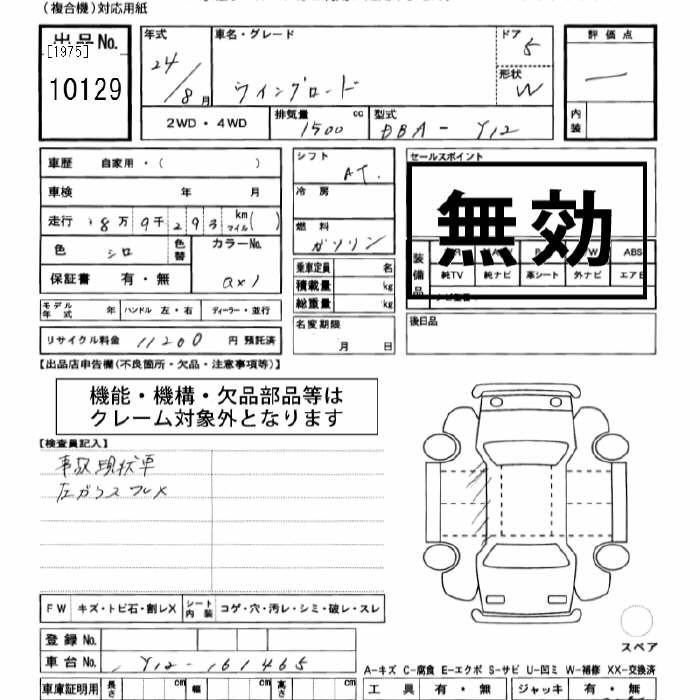 (複合機)対応用紙
出品No.
[1975]
10129
年式
24/8月
車名・グレード
ウイングロード
ドア
5
形状
W
評価点
一
内装
2WD・4WD
排気量
1500 cc
型式
DBA-Y12
車歴 自家用・( )
車検 年 月
走行 18万9千293 km マイル( )
色 シロ
色替
カラーNo.
QX1
保証書 有・無
シフト
AT.
冷房
燃料
ガソリン
乗車定員 名
積載量 kg
総重量 kg
モデル年式 年 ハンドル 左・右 ディーラー・並行
リサイクル料金 11200 円 預託済
名変期限
月 日
セールスポイント
無効
装備品
ABS
純TV 純ナビ 革シート 外ナビ エアB
後日品
【出品店申告欄(不良箇所・欠品・注意事項等)】
機能・機構・欠品部品等は
クレーム対象外となります
【検査員記入】
事故現状車
左ガラスワレX
FW キズ・トビ石・割レX シート内装 コゲ・穴・汚レ・シミ・破レ・スレ
登録No.
車台No. Y12-161465
スペア
A-キズ C-腐食 E-エクボ S-サビ U-凹ミ W-補修 XX-交換済
車庫証明用 長さ cm 幅 cm 高さ cm
工具 有・無 ジャッキ 有・無